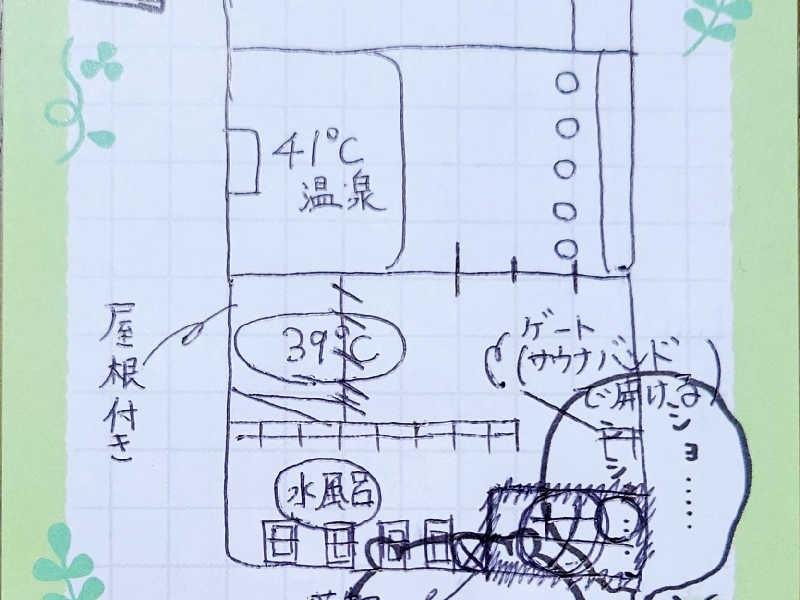 41℃
温泉
屋根付き
39℃
ゲート
(サウナバンド
で開ける)
水風呂
ショ……